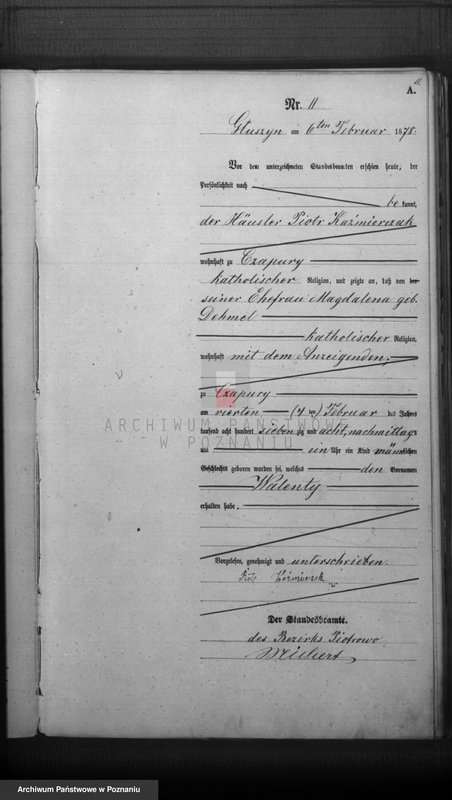 11
A.
Nr. 11
Głuszyn am 6ten Februar 1878.
Vor dem unterzeichneten Standesbeamten erschien heute, der
Persönlichkeit nach
be kannt,
der Häusler Piotr Kaźmierczak
wohnhaft zu Czapury
katholischer Religion, und zeigte an, daß von der
seiner Ehefrau Magdalena geb.
Dehmel
katholischer Religion,
wohnhaft mit dem Anzeigenden,
zu Czapury
am vierten (4 ten) Februar des Jahres
tausend acht hundert sieben zig und acht, nachmittags
um ein Uhr ein Kind männlichen
Geschlechts geboren worden sei, welches den Vornamen
Walenty
erhalten habe.
Vorgelesen, genehmigt und unterschrieben.
Piotr Kaźmierczak
Der Standesbeamte.
des Bezirks Piotrowo
ARCHIWUM PAŃSTWOWE
W POZNANIU
Archiwum Państwowe w Poznaniu